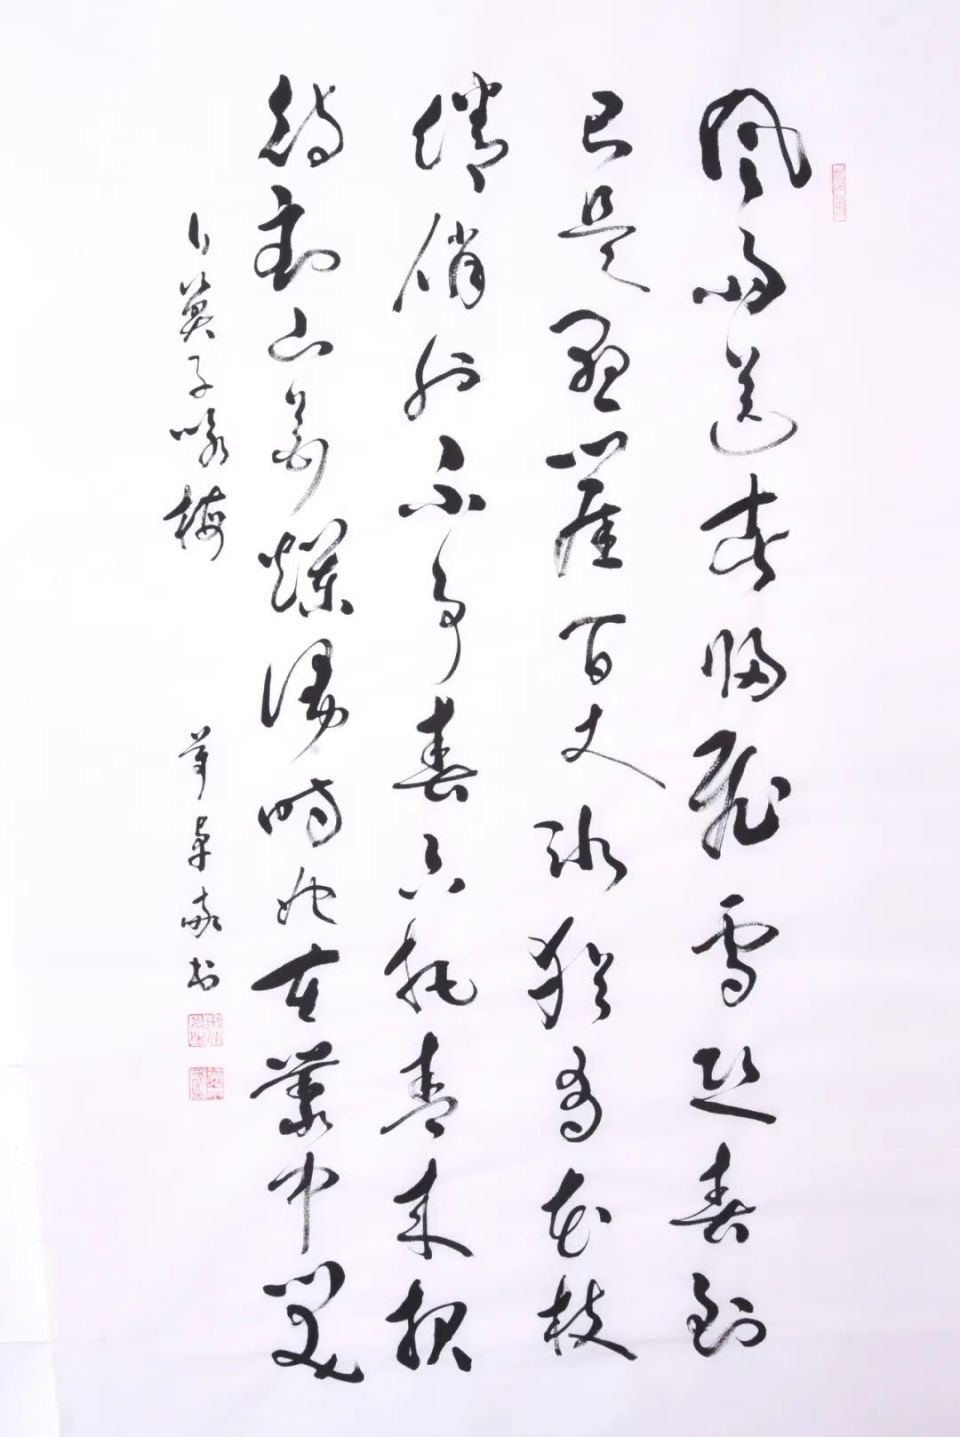 風雨送春歸飛雪迎春到
已是懸崖百丈冰猶有花枝
俏俏也不争春只把春来报
待到山花爛漫時她在叢中笑
卜算子咏梅
书